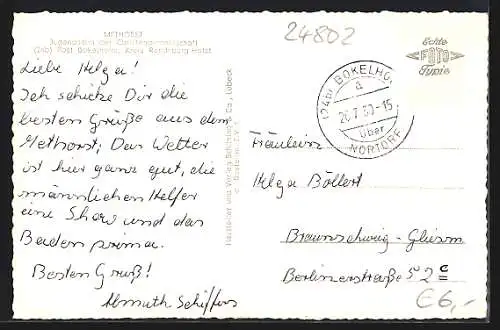 24802
METHORST
Jugendheim der Christengemeinschaft
(24b) Post Bokelholm, Kreis Rendsburg-Holst.
Echte
FOTO
Typie
(24b) BOKELHO
a
26.7.60-15
über
NORTORF
Liebe Helga!
Ich schicke Dir die
besten Grüße aus dem
Methorst. Das Wetter
ist hier ganz gut, die
männlichen Helfer
eine Show und das
Baden prima.
Besten Gruß!
Almuth Schiffers
Hersteller und Verlag Schöning & Co., Lübeck
Fräulein
Helga Böllert
Braunschweig-Gliesm
Berlinerstraße 52 c
€6,-